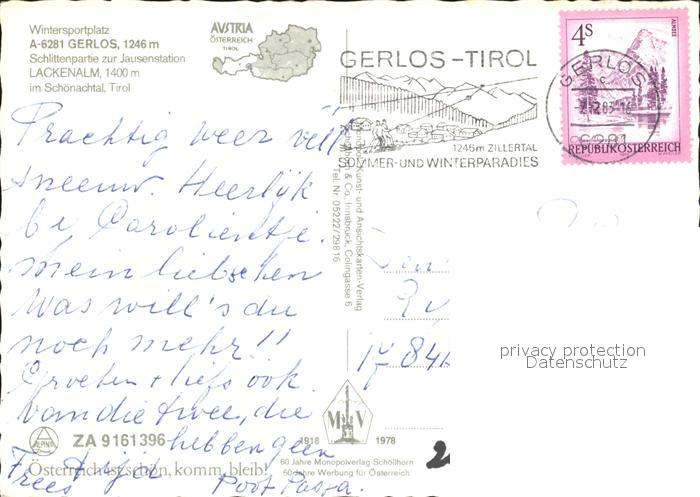 Wintersportplatz
A-6281 GERLOS, 1246 m
Schlittenpartie zur Jausenstation
LACKENALM, 1400 m
im Schönachtal, Tirol
AUSTRIA
ÖSTERREICH
TIROL
GERLOS-TIROL
1246m ZILLERTAL
SOMMER- UND WINTERPARADIES
4s
ALMSEE
REPUBLIK ÖSTERREICH
GERLOS
6281
Prachtig weer veel
sneeuw. Heerlijk
bij Carolientje.
mein liebchen
was will's du
noch mehr!!
Groeten + liefs ook
van die twee, die
hebben geen
tijd
Kunst- und Ansichtskarten-Verlag
& Co., Innsbruck, Colingasse 6
Tel. Nr. 05222/29816
privacy protection
Datenschutz
ALPINA
ZA 9161396
Österreich ist schön, komm, bleib!
M V
1918 1978
60 Jahre Monopolverlag Schöllhorn
50 Jahre Werbung für Österreich